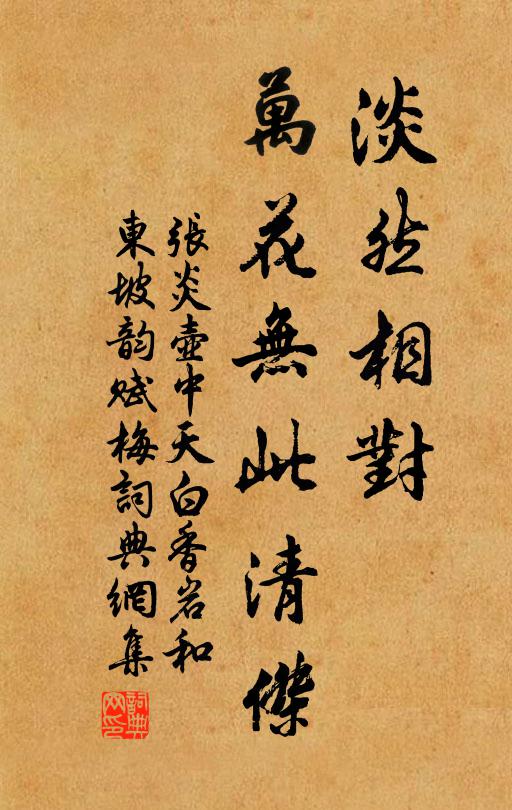 淡然相對
萬花無此清傑
張炎壺中天白香岩和
東坡韵賦梅詞典網集
詞典網印